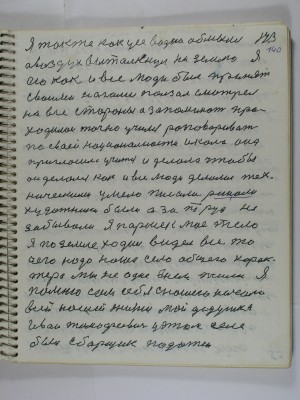 Я также как уся водна обмывал 143
а воздух выталкнул на землю Я 140
его как и все люди был принят
своими ногами ползал смотрел
на все стороны а запоминал про
ходил точно учили розговорыват
по своей национальности школа она
приглошает учит и делала чтобы
он делал как и все люди делали тех
ническими умело писали рисовали
художники были а за труд не
забывали Я парнек мае тело
Я по земле ходил видел все то
чего надо наше село общего харак
тера мы не одне были жили Я
помню сам себя с нашего начала
всей нашей жизни мой дедушка
Иван Тимофеевич у этом селе
был сборщик податей